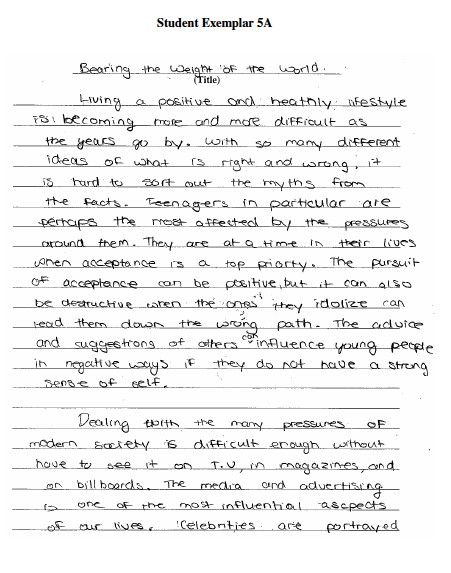 Student Exemplar 5A
Bearing the weight of the world.
(Title)
Living a positive and heathly lifestyle
is becoming more and more difficult as
the years go by. With so many different
ideas of what is right and wrong, it
is hard to sort out the myths from
the facts. Teenagers in particular are
perhaps the most affected by the pressures
around them. They are at a time in their lives
when acceptance is a top priorty. The pursuit
of acceptance can be positive, but it can also
be destructive when the ones they idolize can
lead them down the wrong path. The advice
and suggestions of others can influence young people
in negative ways if they do not have a strong
sense of self.
Dealing with the many pressures of
modern society is difficult enough without
have to see it on T.V, in magazines, and
on billboards. The media and advertising
is one of the most influential ascpects
of our lives. Celebrities are portrayed